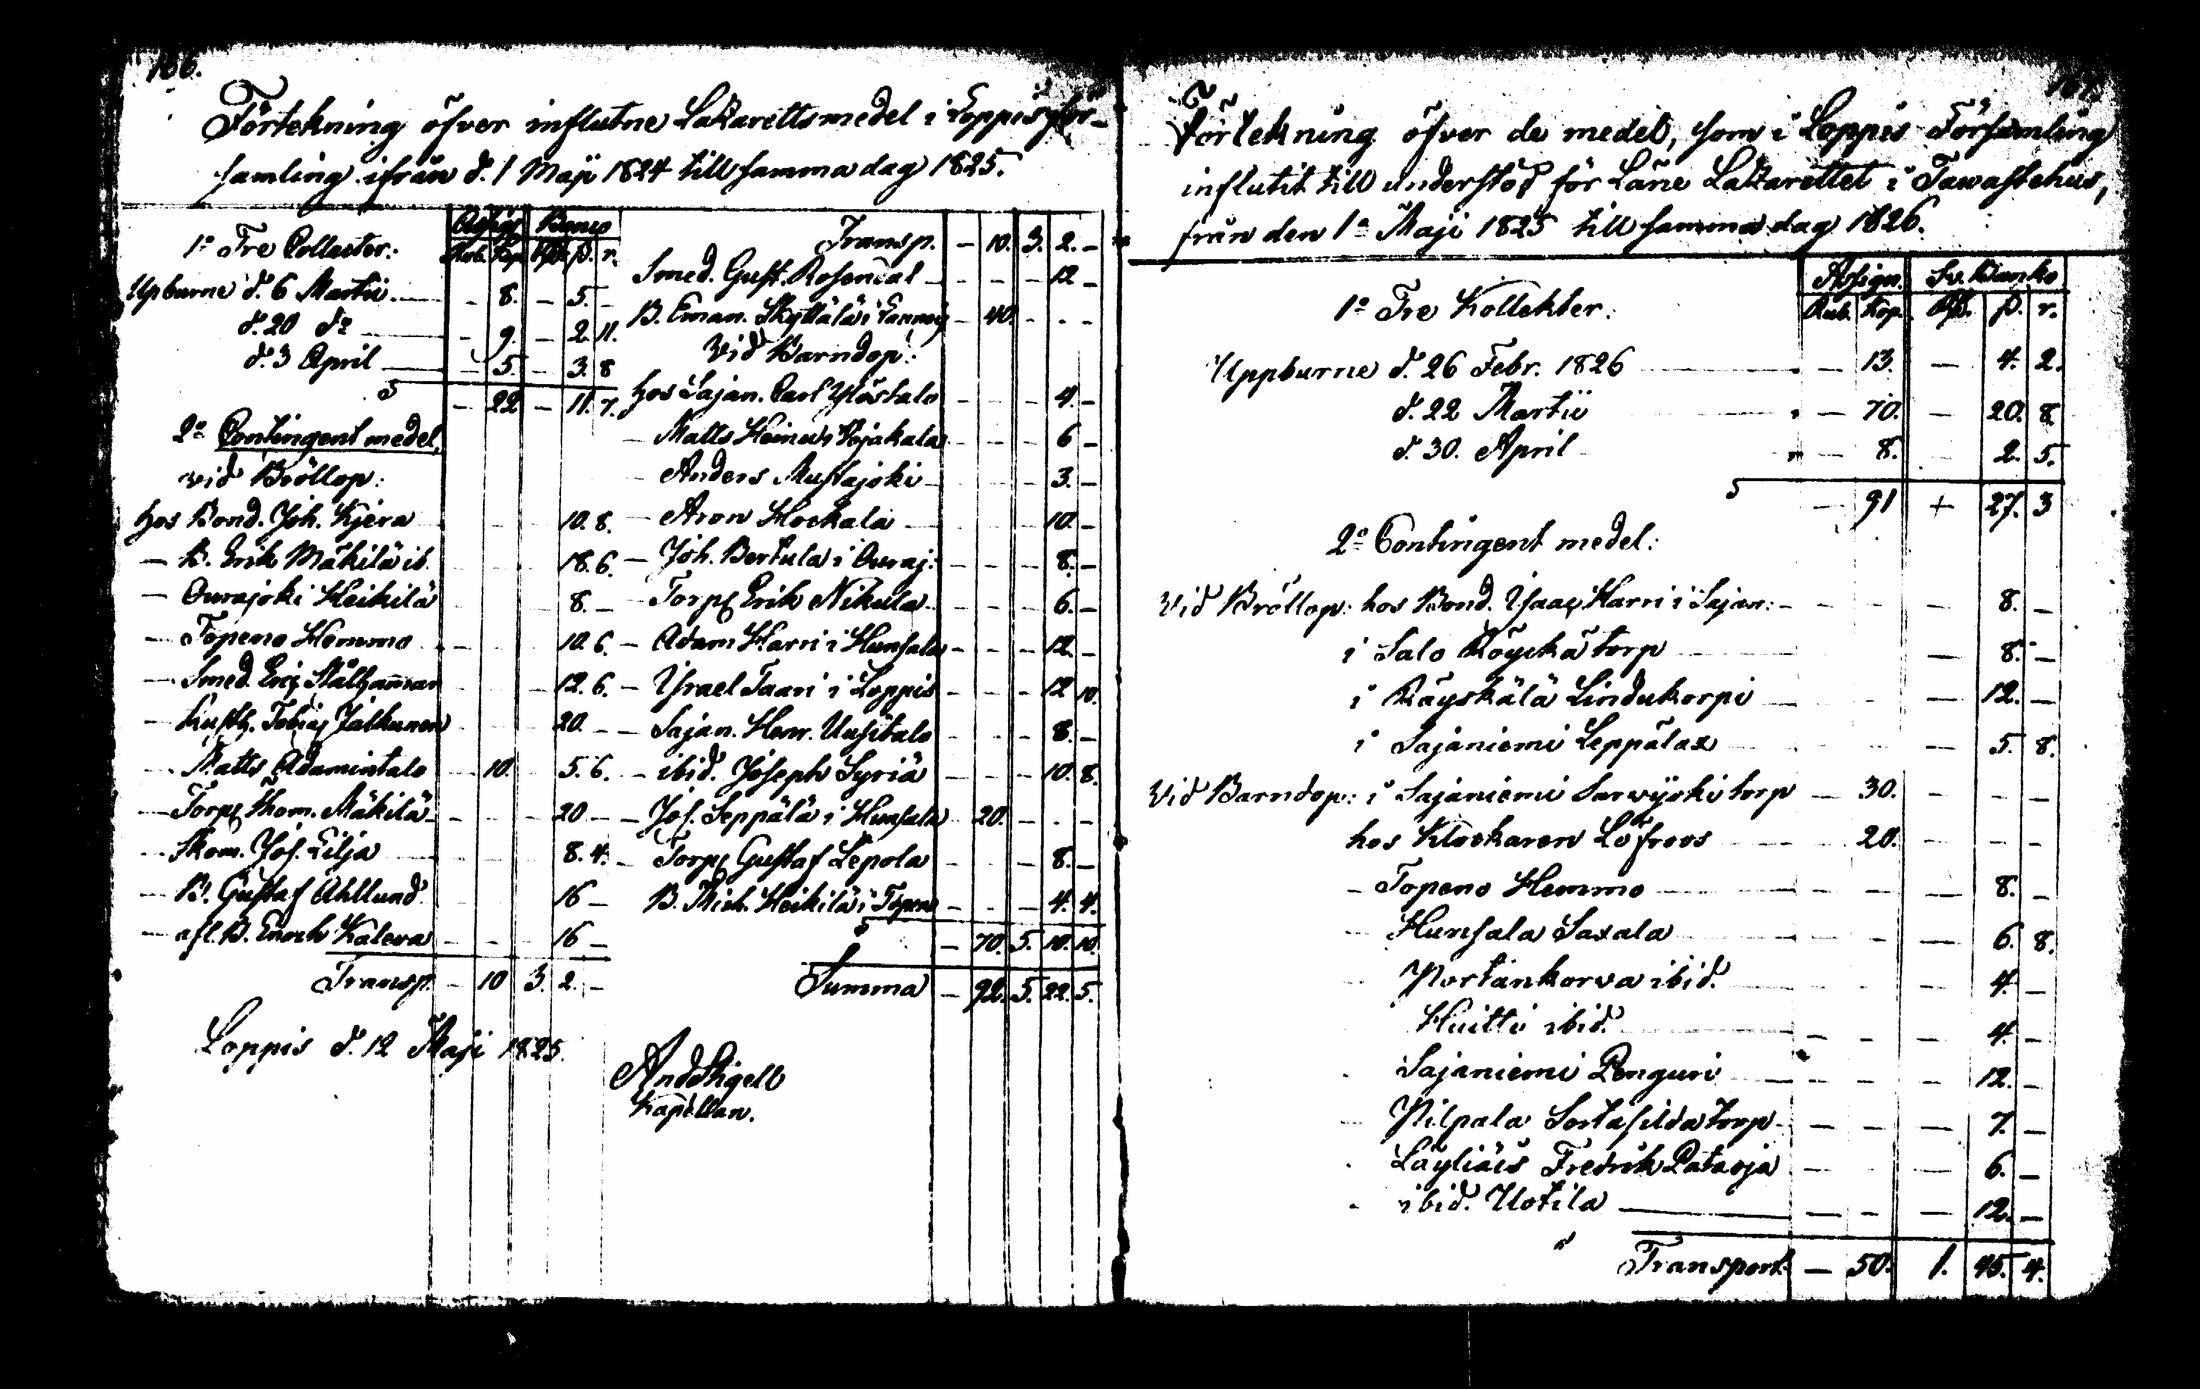 166.
Förtekning öfver influtne Lazarettsmedel i Loppis För-
samling ifrån d. 1 Maji 1824 till samma dag 1825.
Assign Banco
Rub. Kop. Rd. ß. r.
1º Tre Collecter:
Upburne d. 6 Martii — - 8. - 5. -
d. 20 dº — - 9. - 2. 11.
d. 3 April — - 5. - 3. 8
S - 22 - 11. 7.
2º Contingent medel,
vid Bröllop:
hos Bond. Joh. Kjera 10. 8.
— B. Erik Mäkilä ib. 18. 6.
— Ourajoki Heikilä 8. -
— Topeno Hemmo 10. 6.
— Smed. Eric Stålhammar 12. 6.
— Tobias Jalkunen 20. -
— Matts Adamintalo - 10. 5. 6.
— Torp. Thom. Mäkilä 20 -
— Skom. Jos. Lilja 8. 4.
— B. Gustaf Ahllund 16 -
— afl. B. Enoch Kaleva 16 -
Transp. - 10 3. 2. -
Loppis d. 12 Maji 1825.
Transp. - 10. 3. 2. -
Smed. Gust. Rosendal - - - 12 -
B. Eman. Skyttälä i - 40. - - -
Vid Barndop:
hos Sajan. Carl Ylöstalo - - - 4. -
— Matts Heinus Kojakala - - - 6 -
— Anders Mustajoki - - - 3. -
— Aron Hockala - - - 10. -
— Joh. Bertula i Ouraj: - - - 8. -
— Torp. Erik Nikula - - - 6. -
— Adam Harri i Hunsala - - - 12. -
— Israel Taari i Loppis - - - 12 10.
— Sajan. Henr. Uusitalo - - - 8. -
— ibid. Joseph Syriä - - - 10. 8.
— Jos. Seppälä i Hunsala 20. - - -
— Torp. Gustaf Lepola - - - 8. -
B. Mich. Heikilä i Topeno - - - 4. 4.
S - 70. 5. 10. 10.
Summa - 92. 5. 22. 5.
And Kigell
Kapellan.
167.
Förtekning öfver de medel, som i Loppis Församling
influtit till understöd för Läne Lazarettet i Tawastehus,
från den 1ª Maji 1825 till samma dag 1826.
Assign. Sv. Banko
Rub. Kop. Rd. ß. r.
1º Tre Kollekter:
Uppburne d. 26 Febr. 1826 — 13. — 4. 2.
d. 22 Martii — 70. — 20. 8.
d. 30. April — 8. 2. 5.
S — 91 + 27. 3
2º Contingent medel:
Vid Bröllop: hos Bond. Isaac Harri i Sajan: - - - — 8. -
i Salo Röyckä torp — 8. -
i Räyskälä Lindukorpi — 12. -
i Sajaniemi Leppälax — 5. 8.
Vid Barndop: i Sajaniemi Sarvijoki torp — 30. - - -
hos Klockaren Löfroos 20. - - -
- Topeno Hemmo — 8. -
- Hunsala Saxala — 6. 8.
Portankorva ibid. — 4. -
Huitti ibid. — 4. -
Sajaniemi Penguri — 12. -
Pilpala Sortasilda torp — 7. -
Läyliäis Fredrik Pataoja — 6. -
ibid. Uotila — 12. -
Transport. — 50. 1. 45. 4.